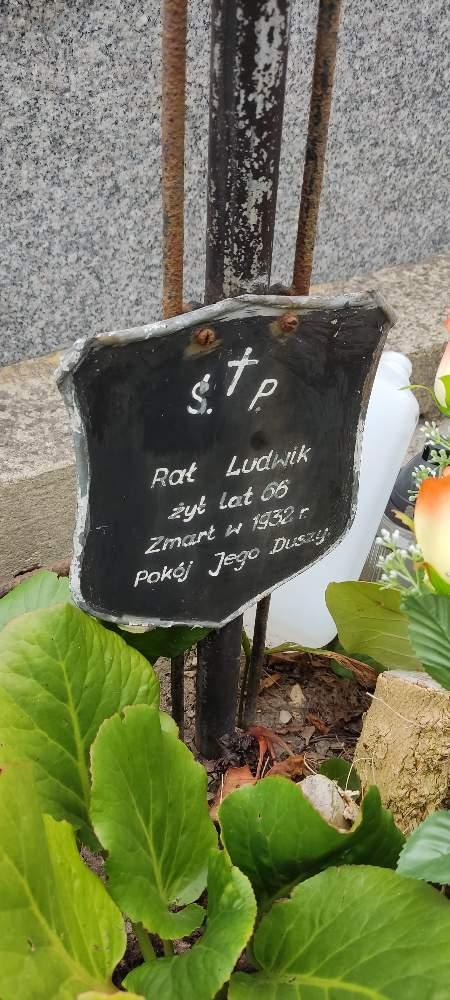 Ś. † P.
Rał Ludwik
żył lat 66
Zmarł w 1932 r.
Pokój Jego Duszy